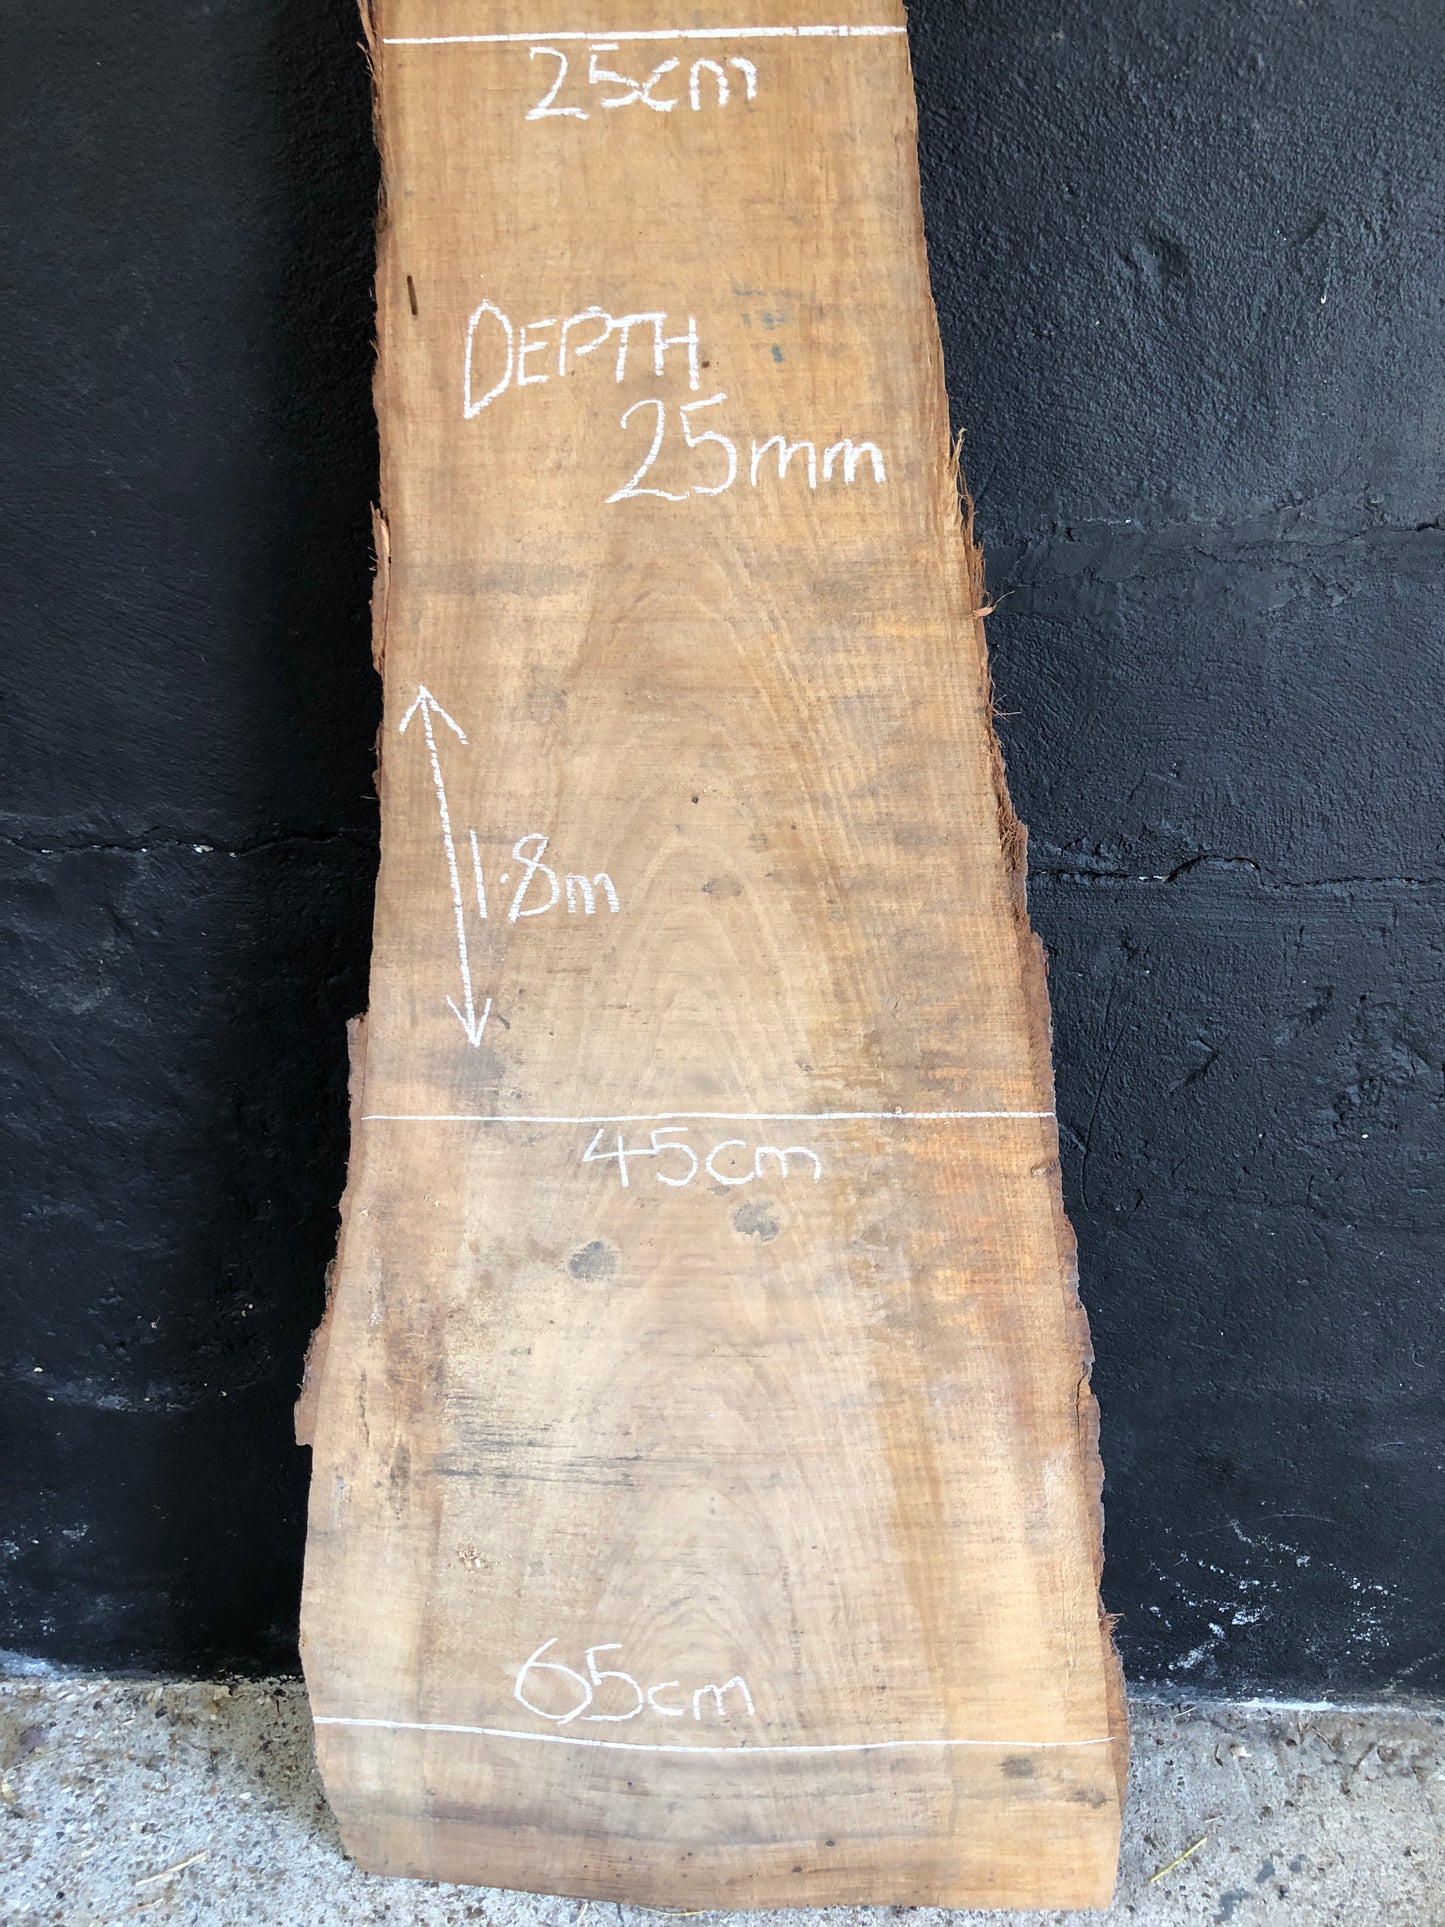 25cm
DEPTH
25mm
1.8m
45cm
65cm